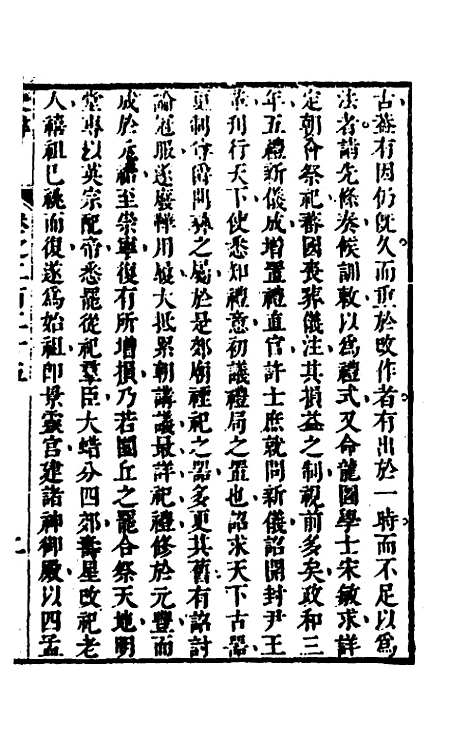 古蓋有因仍旣久而重於改作者有出於一時而不足以爲
法者請先條奏候訓敕以爲禮式又命龍圖學士宋敏求詳
定朝會祭祀蕃國喪葬儀注其損益之制視前多矣政和三
年五禮新儀成增置禮直官許士庶就問新儀詔開封尹王
革刊行天下使悉知禮意初議禮局之置也詔求天下古器
更制尊爵鼎彝之屬於是郊廟禋祀之器多更其舊有詔討
論冠服遂廢韡用履大抵累朝講議最詳祀禮修於元豐而
成於元祐至崇寧復有所增損乃若圜丘之罷合祭天地明
堂專以英宗配帝悉罷從祀羣臣大蜡分四郊壽星改祀老
人禧祖已祧而復遂爲始祖卽景靈宮建諸神御殿以四孟
卷之二百二十五